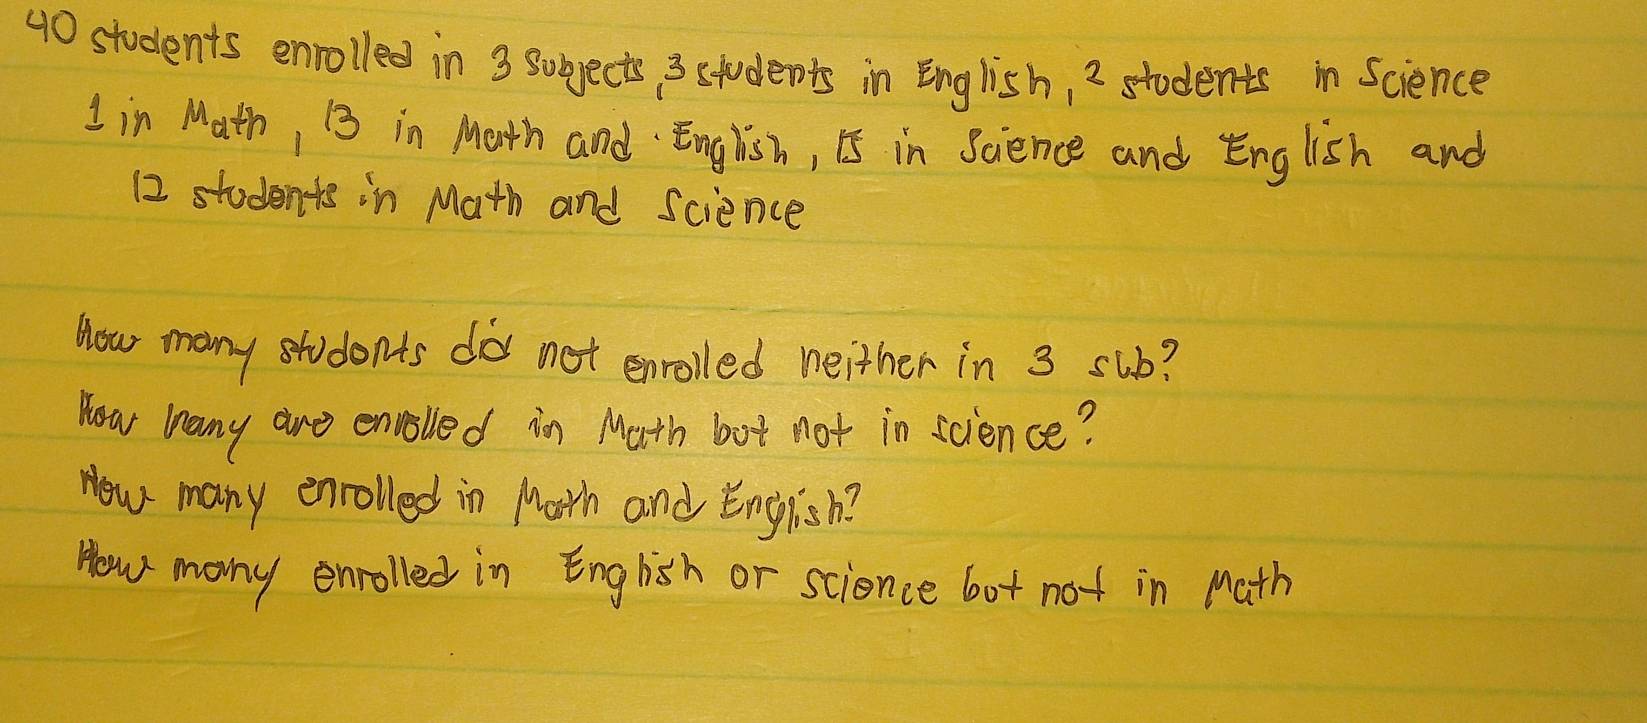 40 students enrolled in 3 subjects, 3 students in English, 2 students in Science
1 in Math, 13 in Math and English, 15 in Science and English and
12 students in Math and Science
How many students did not enrolled neither in 3 sub?
How many are enrolled in Math but not in science?
How many enrolled in Math and English?
How many enrolled in English or science but not in Math